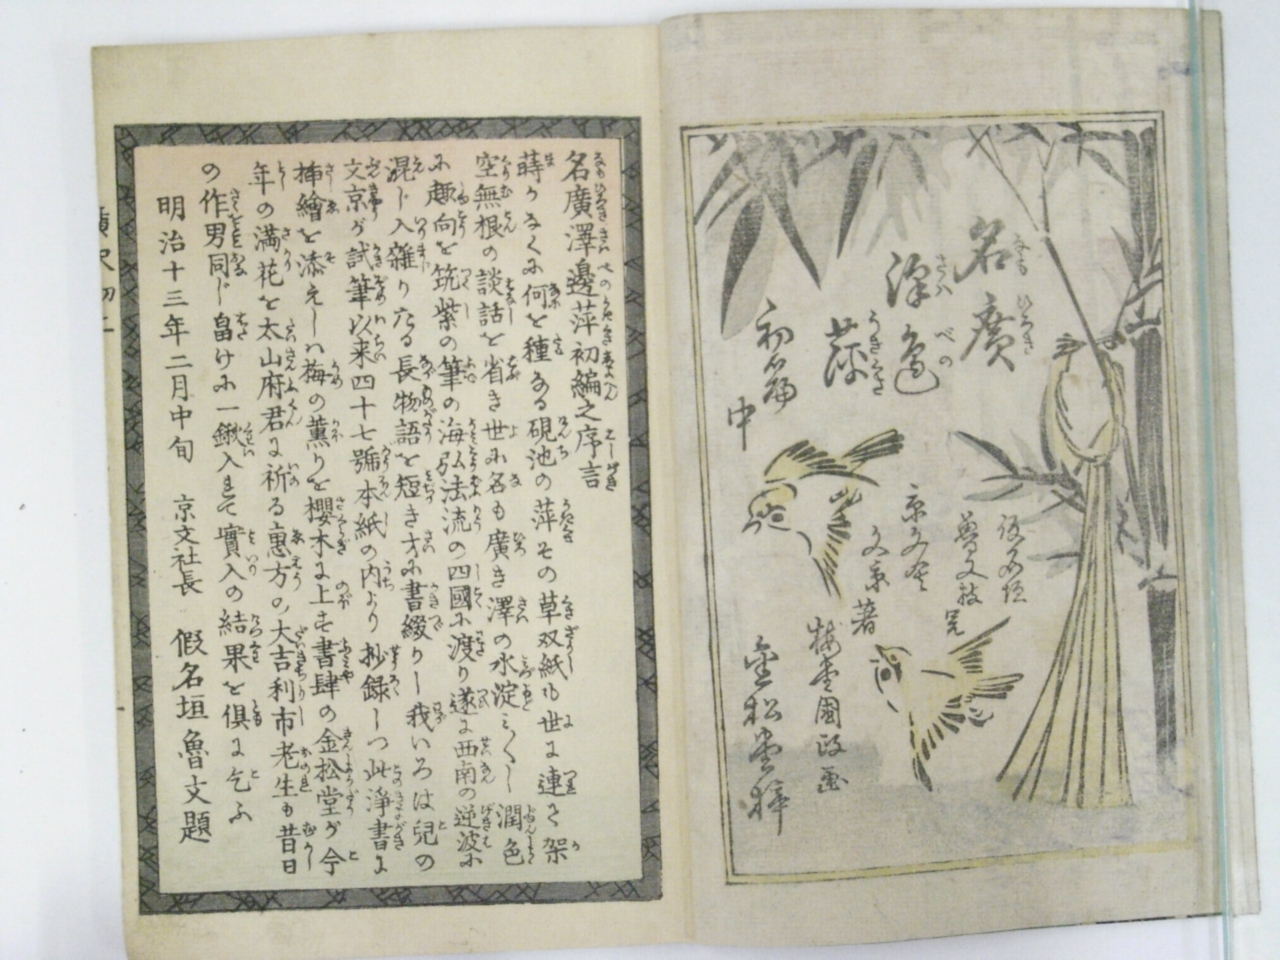 名廣
澤邊
萍
初篇
中
假名垣
魯文技
京文舎
文京著
梅堂國政画
金松堂梓
名廣澤邊萍初編之序言
蒔かなくに何を種なる硯池の萍その草双紙も世に連て架
空無根の談話を省き世に名も廣き澤の水淀みしく潤色
に趣向を筑紫の筆の海弘法流の四國に渡り遂に西南の逆波に
混じ入雜りたる長物語を短き方に書綴りし我いろは兒の
文京が試筆以来四十七號本紙の内より抄録しつ此淨書に
挿繪を添えしハ梅の薫りを櫻木に上す書肆の金松堂が今
年の滿花を太山府君に祈る惠方の大吉利市老生も昔日
の作男同じ畠けに一鍬入れて實入の結果を倶に乞ふ
明治十三年二月中旬 京文社長 假名垣魯文題